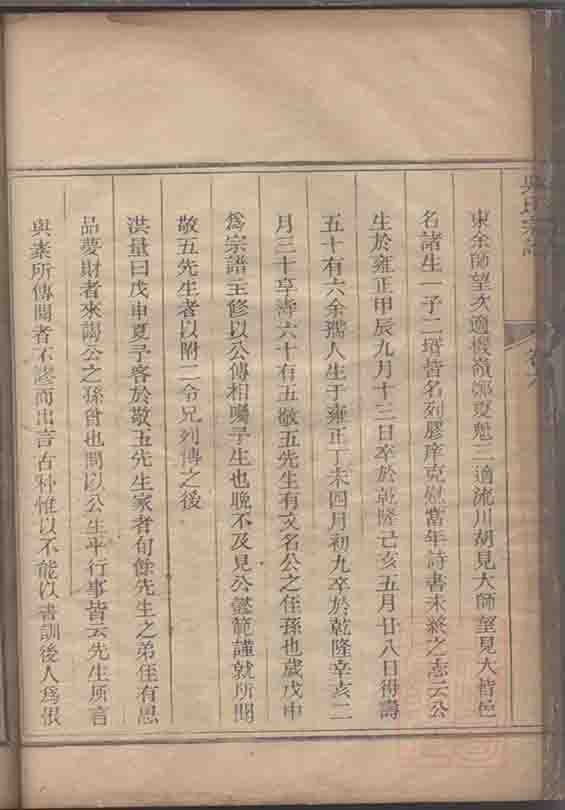 東余師望次適懷嶺鄭夏魁三適流川胡見大師望見大皆邑
名諸生一子二壻皆名列膠庠克慰當年詩書未終之志云公
生於雍正甲辰九月十三日卒於乾隆己亥五月廿八日得壽
五十有六余孺人生于雍正丁未四月初九卒於乾隆辛亥二
月三十享壽六十有五敬五先生有文名公之侄孫也歲戊申
爲宗譜主修以公傳相囑予生也晚不及見公懿範謹就所聞
敬五先生者以附二令兄列傳之後
洪量曰戊申夏予客於敬五先生家者旬餘先生之弟侄有思
品夢財者來謁公之孫曾也問以公生平行事皆云先生所言
與素所傳聞者不謬而出言古朴惟以不能以書訓後人爲恨
吳氏宗譜